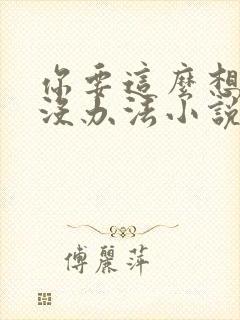 你要這麼想
沒办法小說
傅麗萍